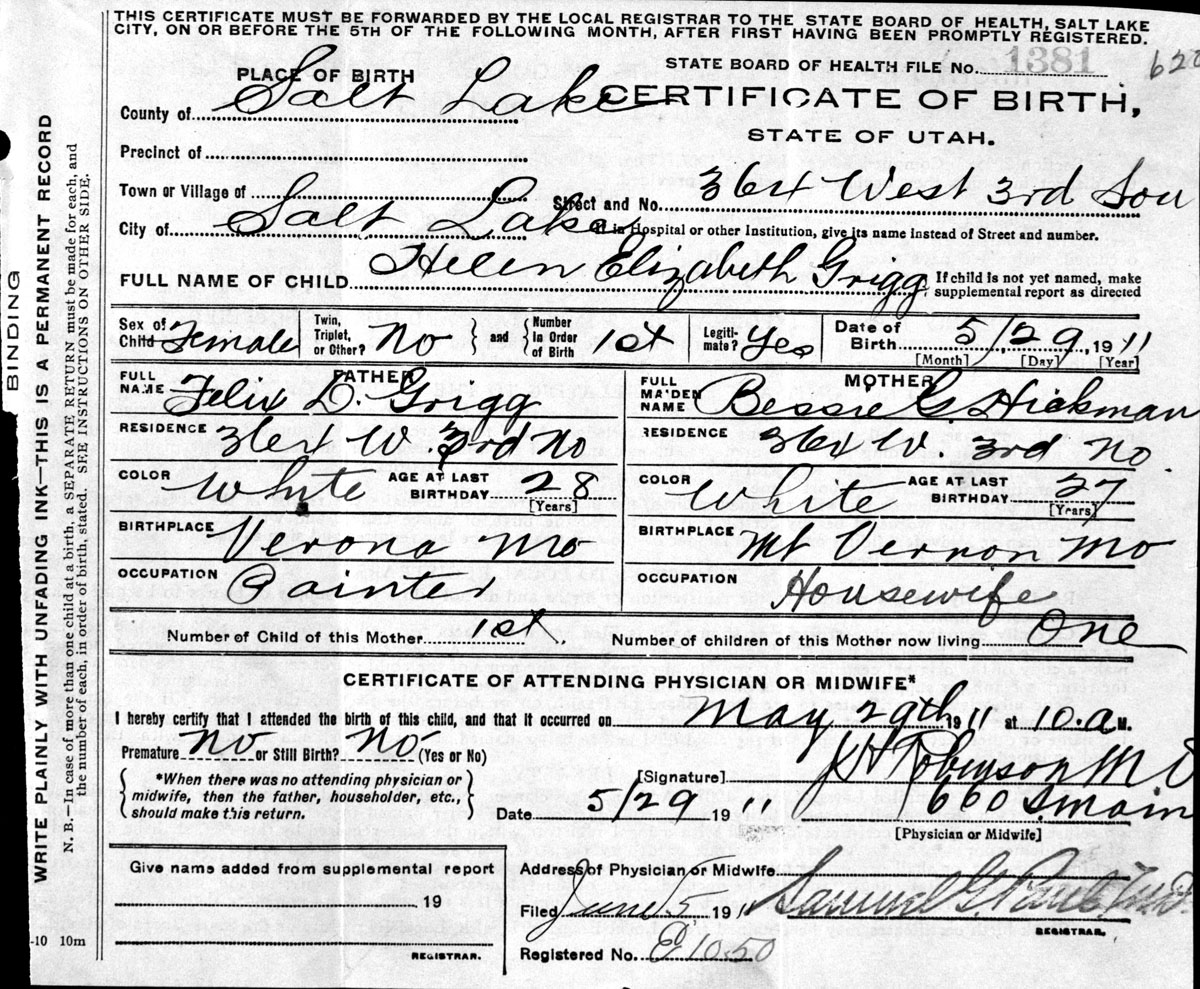 THIS CERTIFICATE MUST BE FORWARDED BY THE LOCAL REGISTRAR TO THE STATE BOARD OF HEALTH, SALT LAKE
CITY, ON OR BEFORE THE 5TH OF THE FOLLOWING MONTH, AFTER FIRST HAVING BEEN PROMPTLY REGISTERED.
STATE BOARD OF HEALTH FILE No. 1381
PLACE OF BIRTH
County of Salt Lake
CERTIFICATE OF BIRTH,
STATE OF UTAH.
Precinct of
Town or Village of
Street and No. 364 West 3rd Sou
City of Salt Lake
If in Hospital or other Institution, give its name instead of Street and number.
FULL NAME OF CHILD Helen Elizabeth Grigg
If child is not yet named, make
supplemental report as directed
Sex of Child Female
Twin, Triplet, or Other? No
and Number In Order of Birth 1st
Legitimate? Yes
Date of Birth 5/29, 1911
[Month] [Day] [Year]
FATHER
FULL NAME Felix D. Grigg
RESIDENCE 364 W. 3rd No
COLOR White AGE AT LAST BIRTHDAY 28
[Years]
BIRTHPLACE Verona Mo
OCCUPATION Painter
MOTHER
FULL MAIDEN NAME Bessie G. Hickman
RESIDENCE 364 W. 3rd No.
COLOR White AGE AT LAST BIRTHDAY 27
[Years]
BIRTHPLACE Mt Vernon Mo
OCCUPATION Housewife
Number of Child of this Mother 1st. Number of children of this Mother now living One
CERTIFICATE OF ATTENDING PHYSICIAN OR MIDWIFE*
I hereby certify that I attended the birth of this child, and that it occurred on May 29th 1911 at 10.a M.
Premature No or Still Birth? No (Yes or No)
*When there was no attending physician or
midwife, then the father, householder, etc.,
should make this return.
[Signature] Robinson M D
660 S. main
Date 5/29 19 11
[Physician or Midwife]
Give name added from supplemental report
19
REGISTRAR.
Address of Physician or Midwife
Filed June 5, 19 11 Samuel G. Paul
REGISTRAR.
Registered No. 1050
-10 10m
BINDING
WRITE PLAINLY WITH UNFADING INK—THIS IS A PERMANENT RECORD
N. B.—In case of more than one child at a birth, a SEPARATE RETURN must be made for each, and
the number of each, in order of birth, stated. SEE INSTRUCTIONS ON OTHER SIDE.